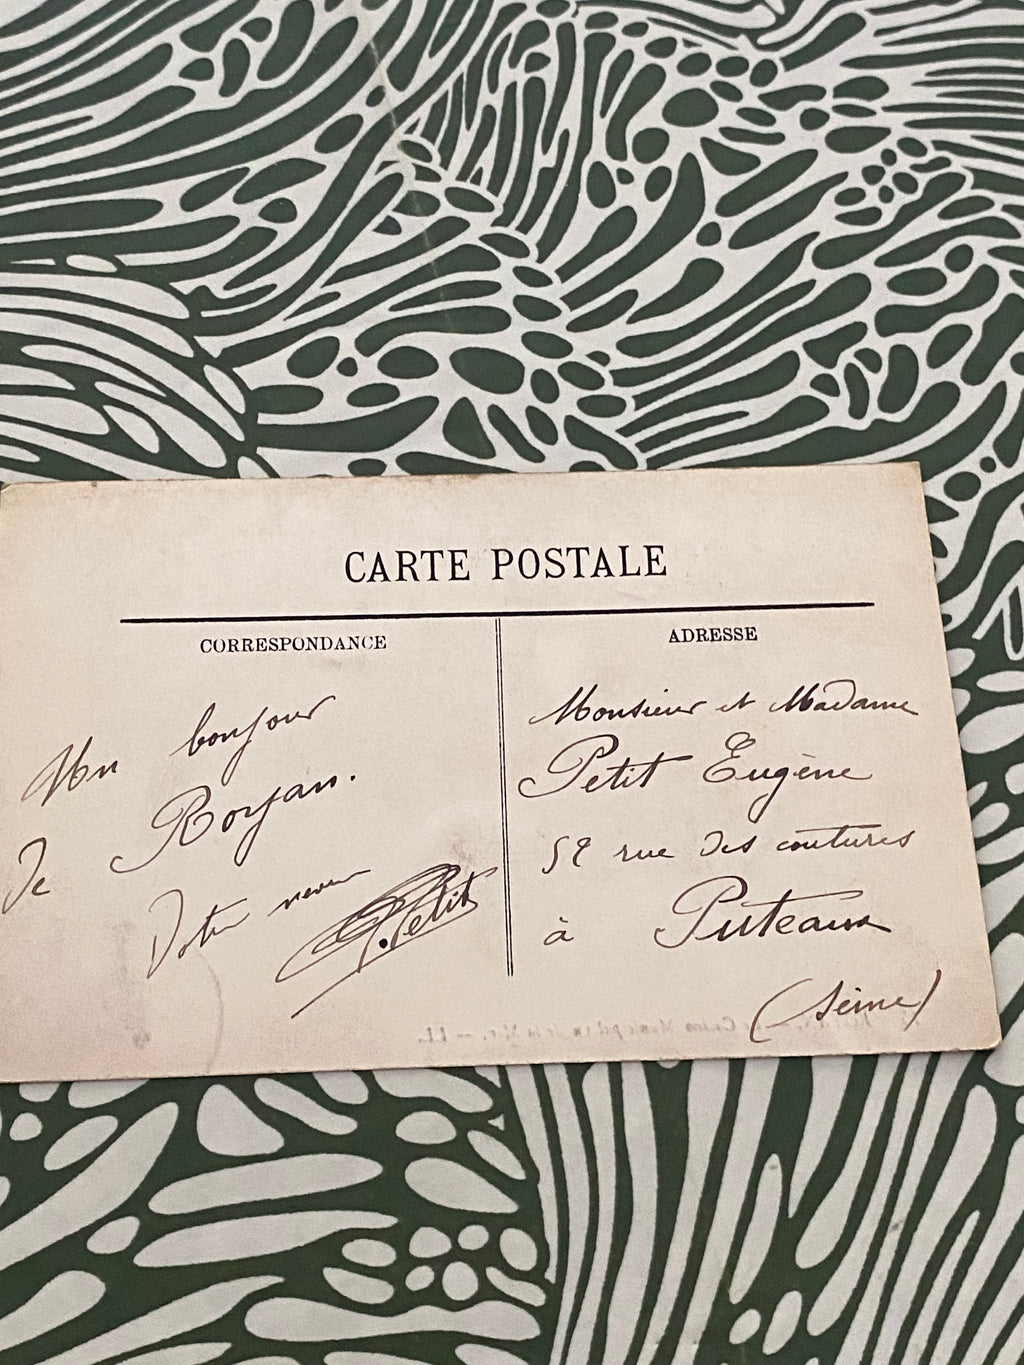 CARTE POSTALE
CORRESPONDANCE
Un bonjour
de Royan.
Votre neveu
G. Petit
ADRESSE
Monsieur et Madame
Petit Eugène
52 rue des coutures
à Puteaux
(Seine)